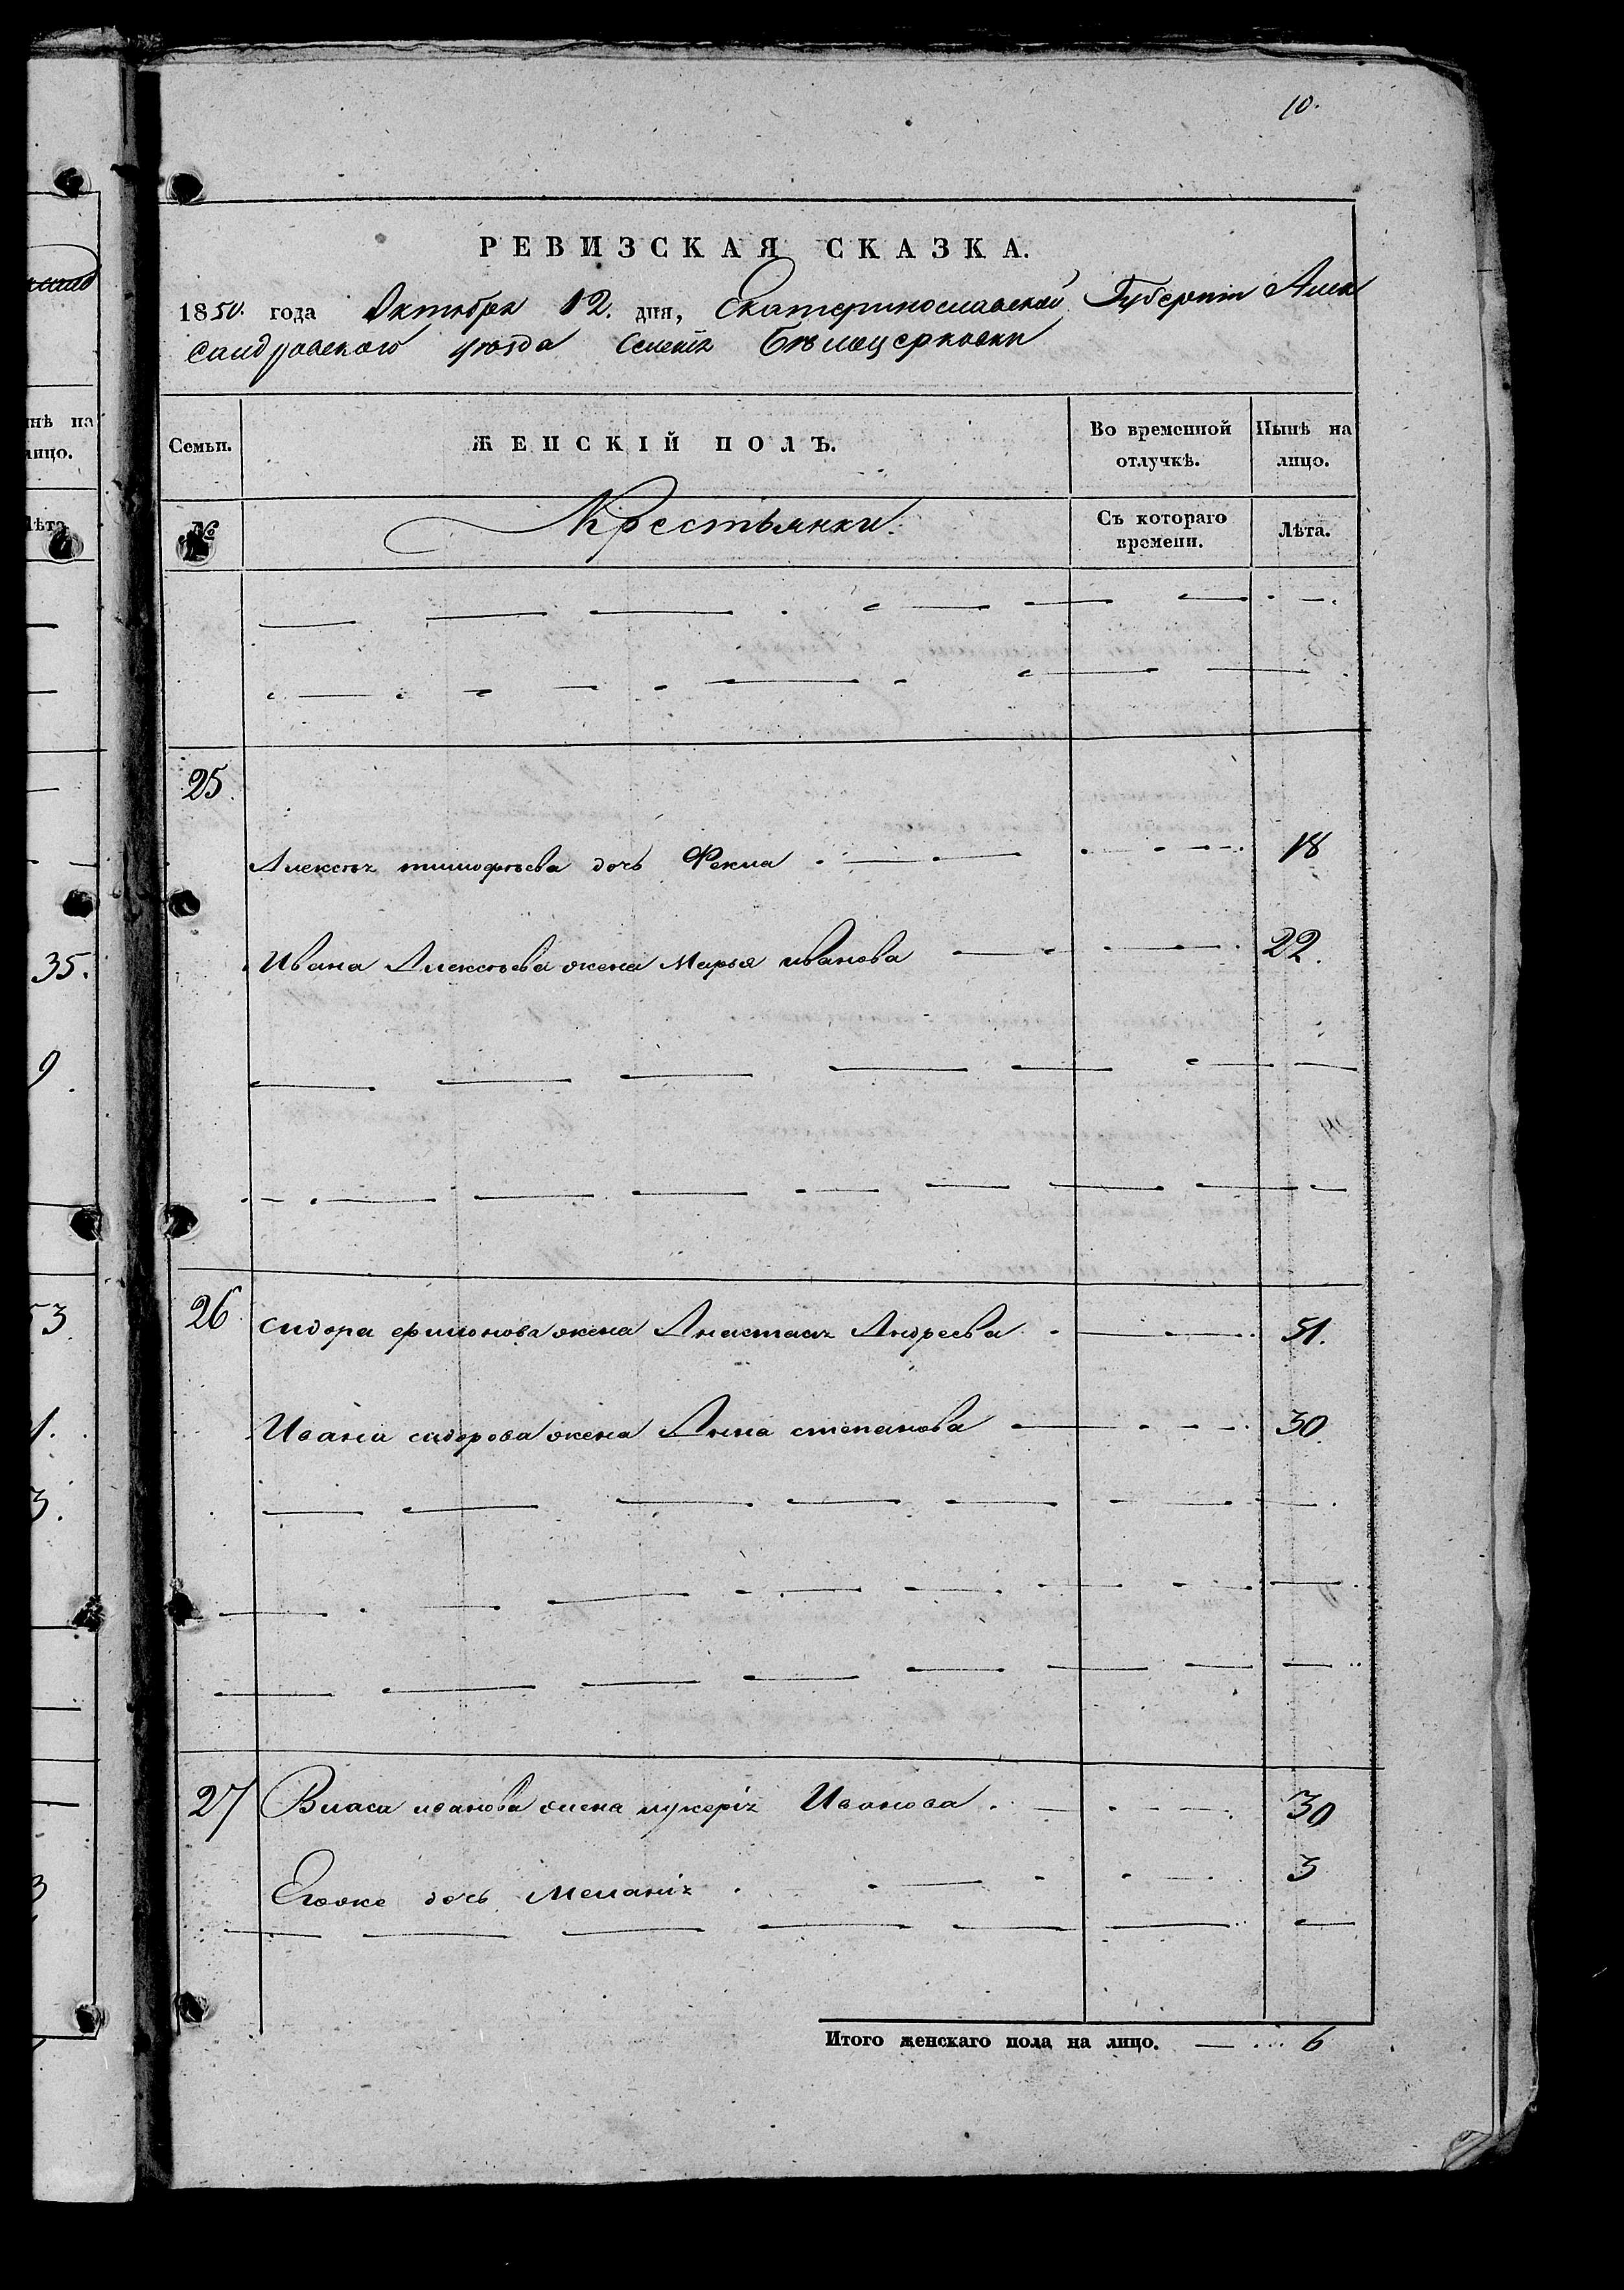 10.
РЕВИЗСКАЯ СКАЗКА.
1850. года Октября 12. дня, Екатеринославской Губерніи Алек
сандровского уѣзда Селенія Бѣлоцерковки
нѣ на
лицо.
Лѣта
Семьи.
ЖЕНСКІЙ ПОЛЪ.
Во временной отлучкѣ.
Нынѣ на лицо.
№
Крестьянки.
Съ котораго времени.
Лѣта.
25.
Алексѣя тимофѣева дочь Фекла 18
Ивана Алексѣева жена Марья иванова 22.
35.
9.
26. сидора жена Анастасія Андреева 51.
Ивана сидорова жена Анна степанова 30.
53
1.
3.
27 Власа иванова жена лукерія Иванова 30
Егоже дочь Меланія 3
3
Итого женскаго пола на лицо. 6